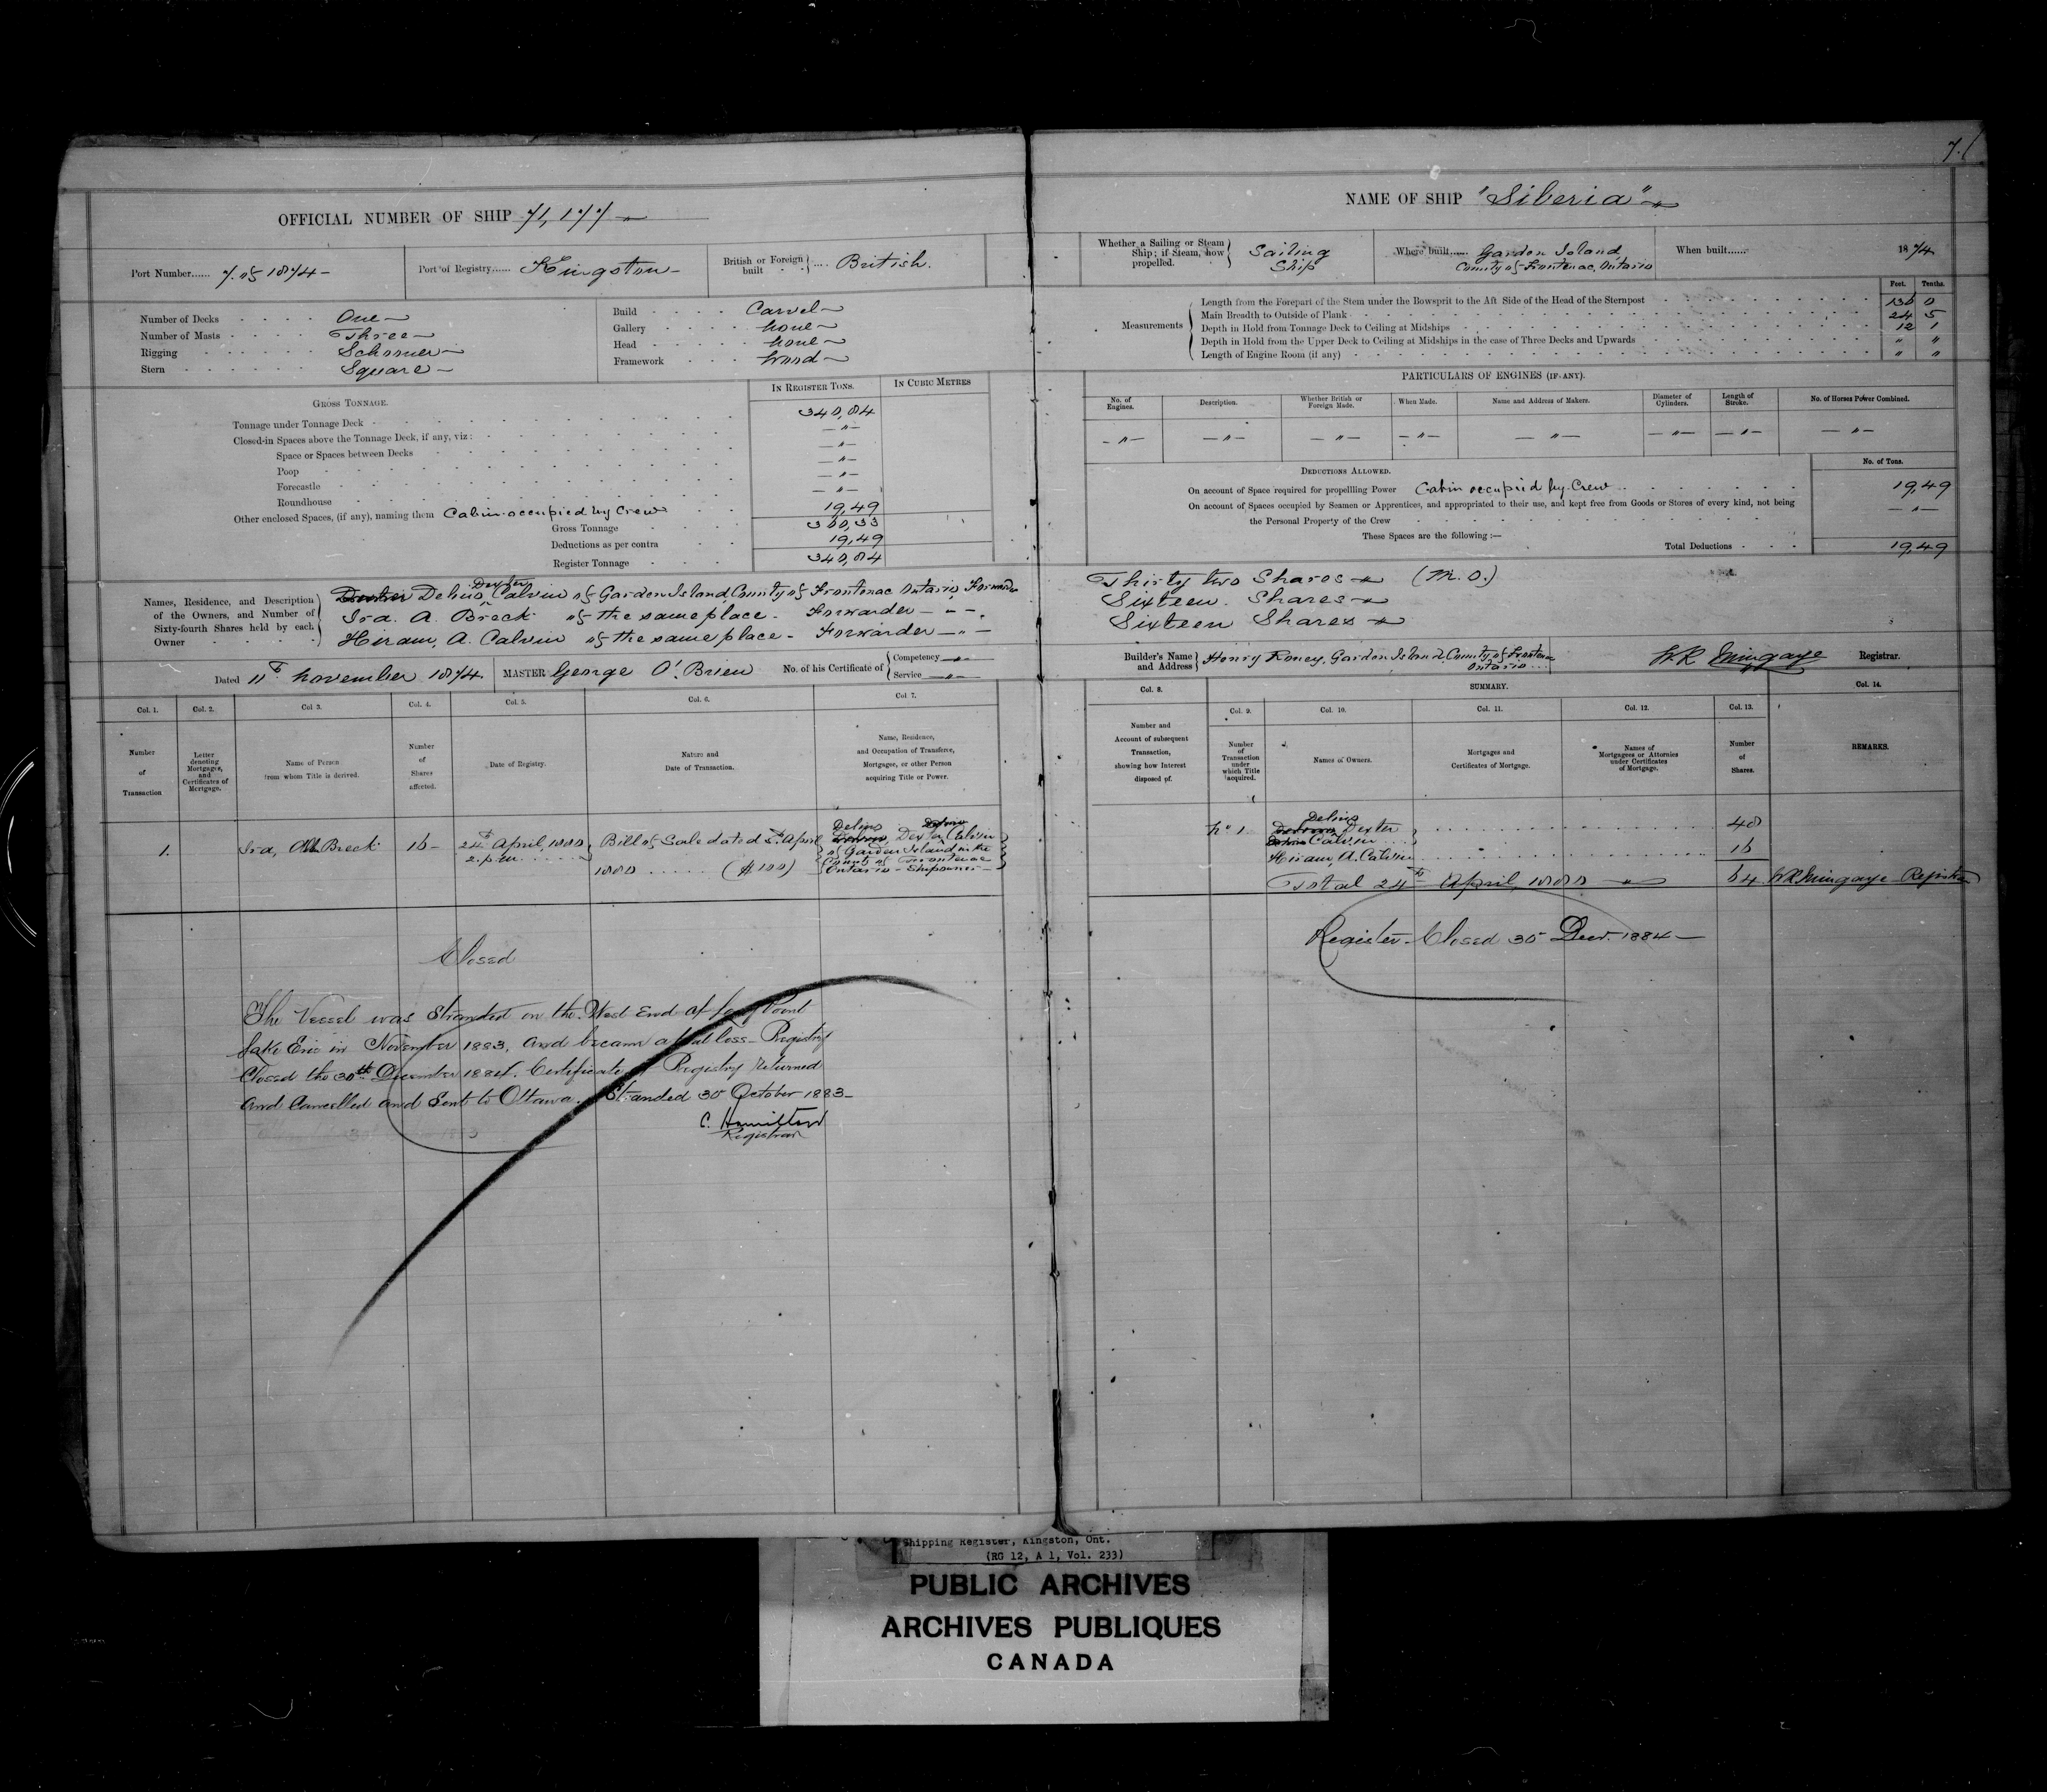 7.
OFFICIAL NUMBER OF SHIP 71,177
Port Number...... 7. of 1874
Port of Registry...... Kingston
British or Foreign built .... British.
Number of Decks One
Number of Masts Three
Rigging Schooner
Stern Square
Build Carvel
Gallery none
Head none
Framework Wood
GROSS TONNAGE.
IN REGISTER TONS.
IN CUBIC METRES
Tonnage under Tonnage Deck 348,84
Closed-in Spaces above the Tonnage Deck, if any, viz: — " —
Space or Spaces between Decks — " —
Poop — " —
Forecastle — " —
Roundhouse — " —
Other enclosed Spaces, (if any), naming them Cabin occupied by Crew 19,49
Gross Tonnage 368,33
Deductions as per contra 19,49
Register Tonnage 348,84
Names, Residence, and Description of the Owners, and Number of Sixty-fourth Shares held by each Owner
Dexter
Delino Calvin of Garden Island, County of Frontenac Ontario, Forwarder
Ira. A. Breck of the same place - Forwarder — " —
Hiram, A. Calvin of the same place - Forwarder — " —
Dated 11th November 1874.
MASTER George O'Brien
No. of his Certificate of Competency — " —
Service — " —
Col. 1.
Col. 2.
Col 3.
Col. 4.
Col. 5.
Col. 6.
Col. 7.
Number of Transaction
Letter denoting Mortgages, and Certificates of Mortgage.
Name of Person from whom Title is derived.
Number of Shares affected.
Date of Registry.
Nature and Date of Transaction.
Name, Residence, and Occupation of Transferee, Mortgagee, or other Person acquiring Title or Power.
1.
Ira, A Breck
16
24th April, 1880
2. p.m.
Bill of Sale dated 5th April
1880 ...... ($100)
Delino
Dexter Calvin
of Garden Island in the
County of Frontenac
Ontario - Shipowner
Closed
The Vessel was Stranded on the West End of Long Point
Lake Erie in November 1883, and became a total loss - Registry
Closed the 30th December 1884. Certificate of Registry returned
and Cancelled and Sent to Ottawa. Stranded 30 October 1883
C. Hamilton
Registrar
NAME OF SHIP "Siberia"
Whether a Sailing or Steam Ship; if Steam, how propelled.
Sailing
Ship
Where built...... Garden Island,
County of Frontenac, Ontario
When built...... 1874
Feet. Tenths.
Measurements
Length from the Forepart of the Stem under the Bowsprit to the Aft Side of the Head of the Sternpost 136 0
Main Breadth to Outside of Plank 24 5
Depth in Hold from Tonnage Deck to Ceiling at Midships 12 1
Depth in Hold from the Upper Deck to Ceiling at Midships in the case of Three Decks and Upwards " "
Length of Engine Room (if any) " "
PARTICULARS OF ENGINES (IF ANY).
No. of Engines.
Description.
Whether British or Foreign Made.
When Made.
Name and Address of Makers.
Diameter of Cylinders.
Length of Stroke.
No. of Horses Power Combined.
— " — — " — — " — — " — — " — — " — — " — — " —
DEDUCTIONS ALLOWED.
No. of Tons.
On account of Space required for propelling Power Cabin occupied by Crew 19,49
On account of Spaces occupied by Seamen or Apprentices, and appropriated to their use, and kept free from Goods or Stores of every kind, not being
the Personal Property of the Crew — " —
These Spaces are the following :—
Total Deductions 19,49
Thirty two Shares (M. O.)
Sixteen Shares
Sixteen Shares
Builder's Name and Address Henry Roney, Garden Island, County of Frontenac
Ontario
W.R Mingaye Registrar.
Col. 8.
SUMMARY.
Col. 14.
Col. 9.
Col. 10.
Col. 11.
Col. 12.
Col. 13.
Number and Account of subsequent Transaction, showing how Interest disposed of.
Number of Transaction under which Title acquired.
Names of Owners.
Mortgages and Certificates of Mortgage.
Names of Mortgagees or Attornies under Certificates of Mortgage.
Number of Shares.
REMARKS.
No 1
Delino
Dexter
Calvin 48
Hiram, A. Calvin 16
Total 24th April, 1880 64 W.R Mingaye Registrar
Register Closed 30 Decr. 1884
Shipping Register, Kingston, Ont.
(RG 12, A 1, Vol. 233)
PUBLIC ARCHIVES
ARCHIVES PUBLIQUES
CANADA